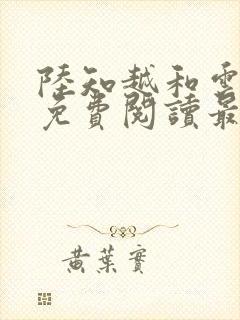 陸知越和
免費閱讀最
黃葉實